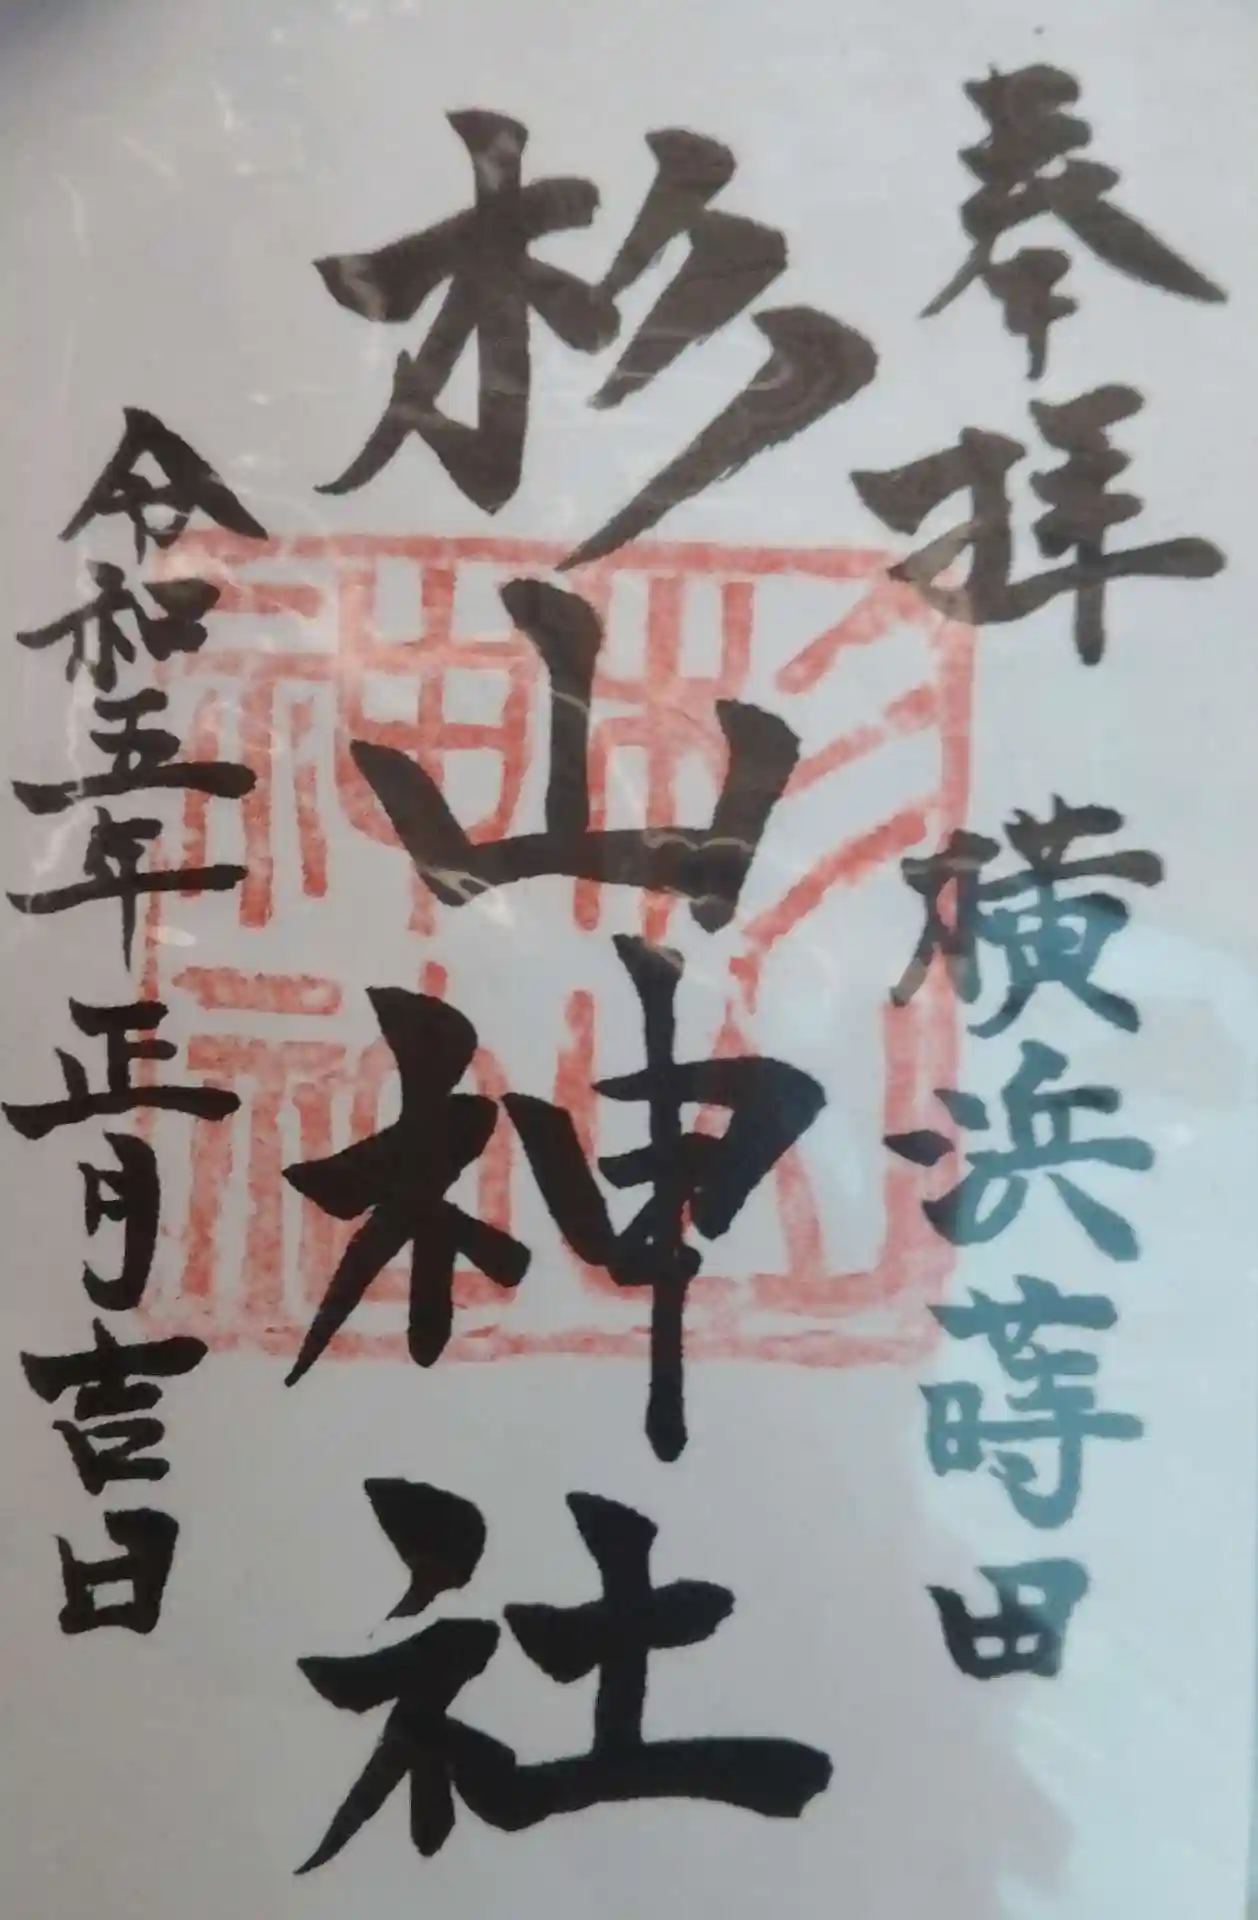 奉拝 横浜蒔田
杉山神社
令和五年正月吉日
杉山
神社